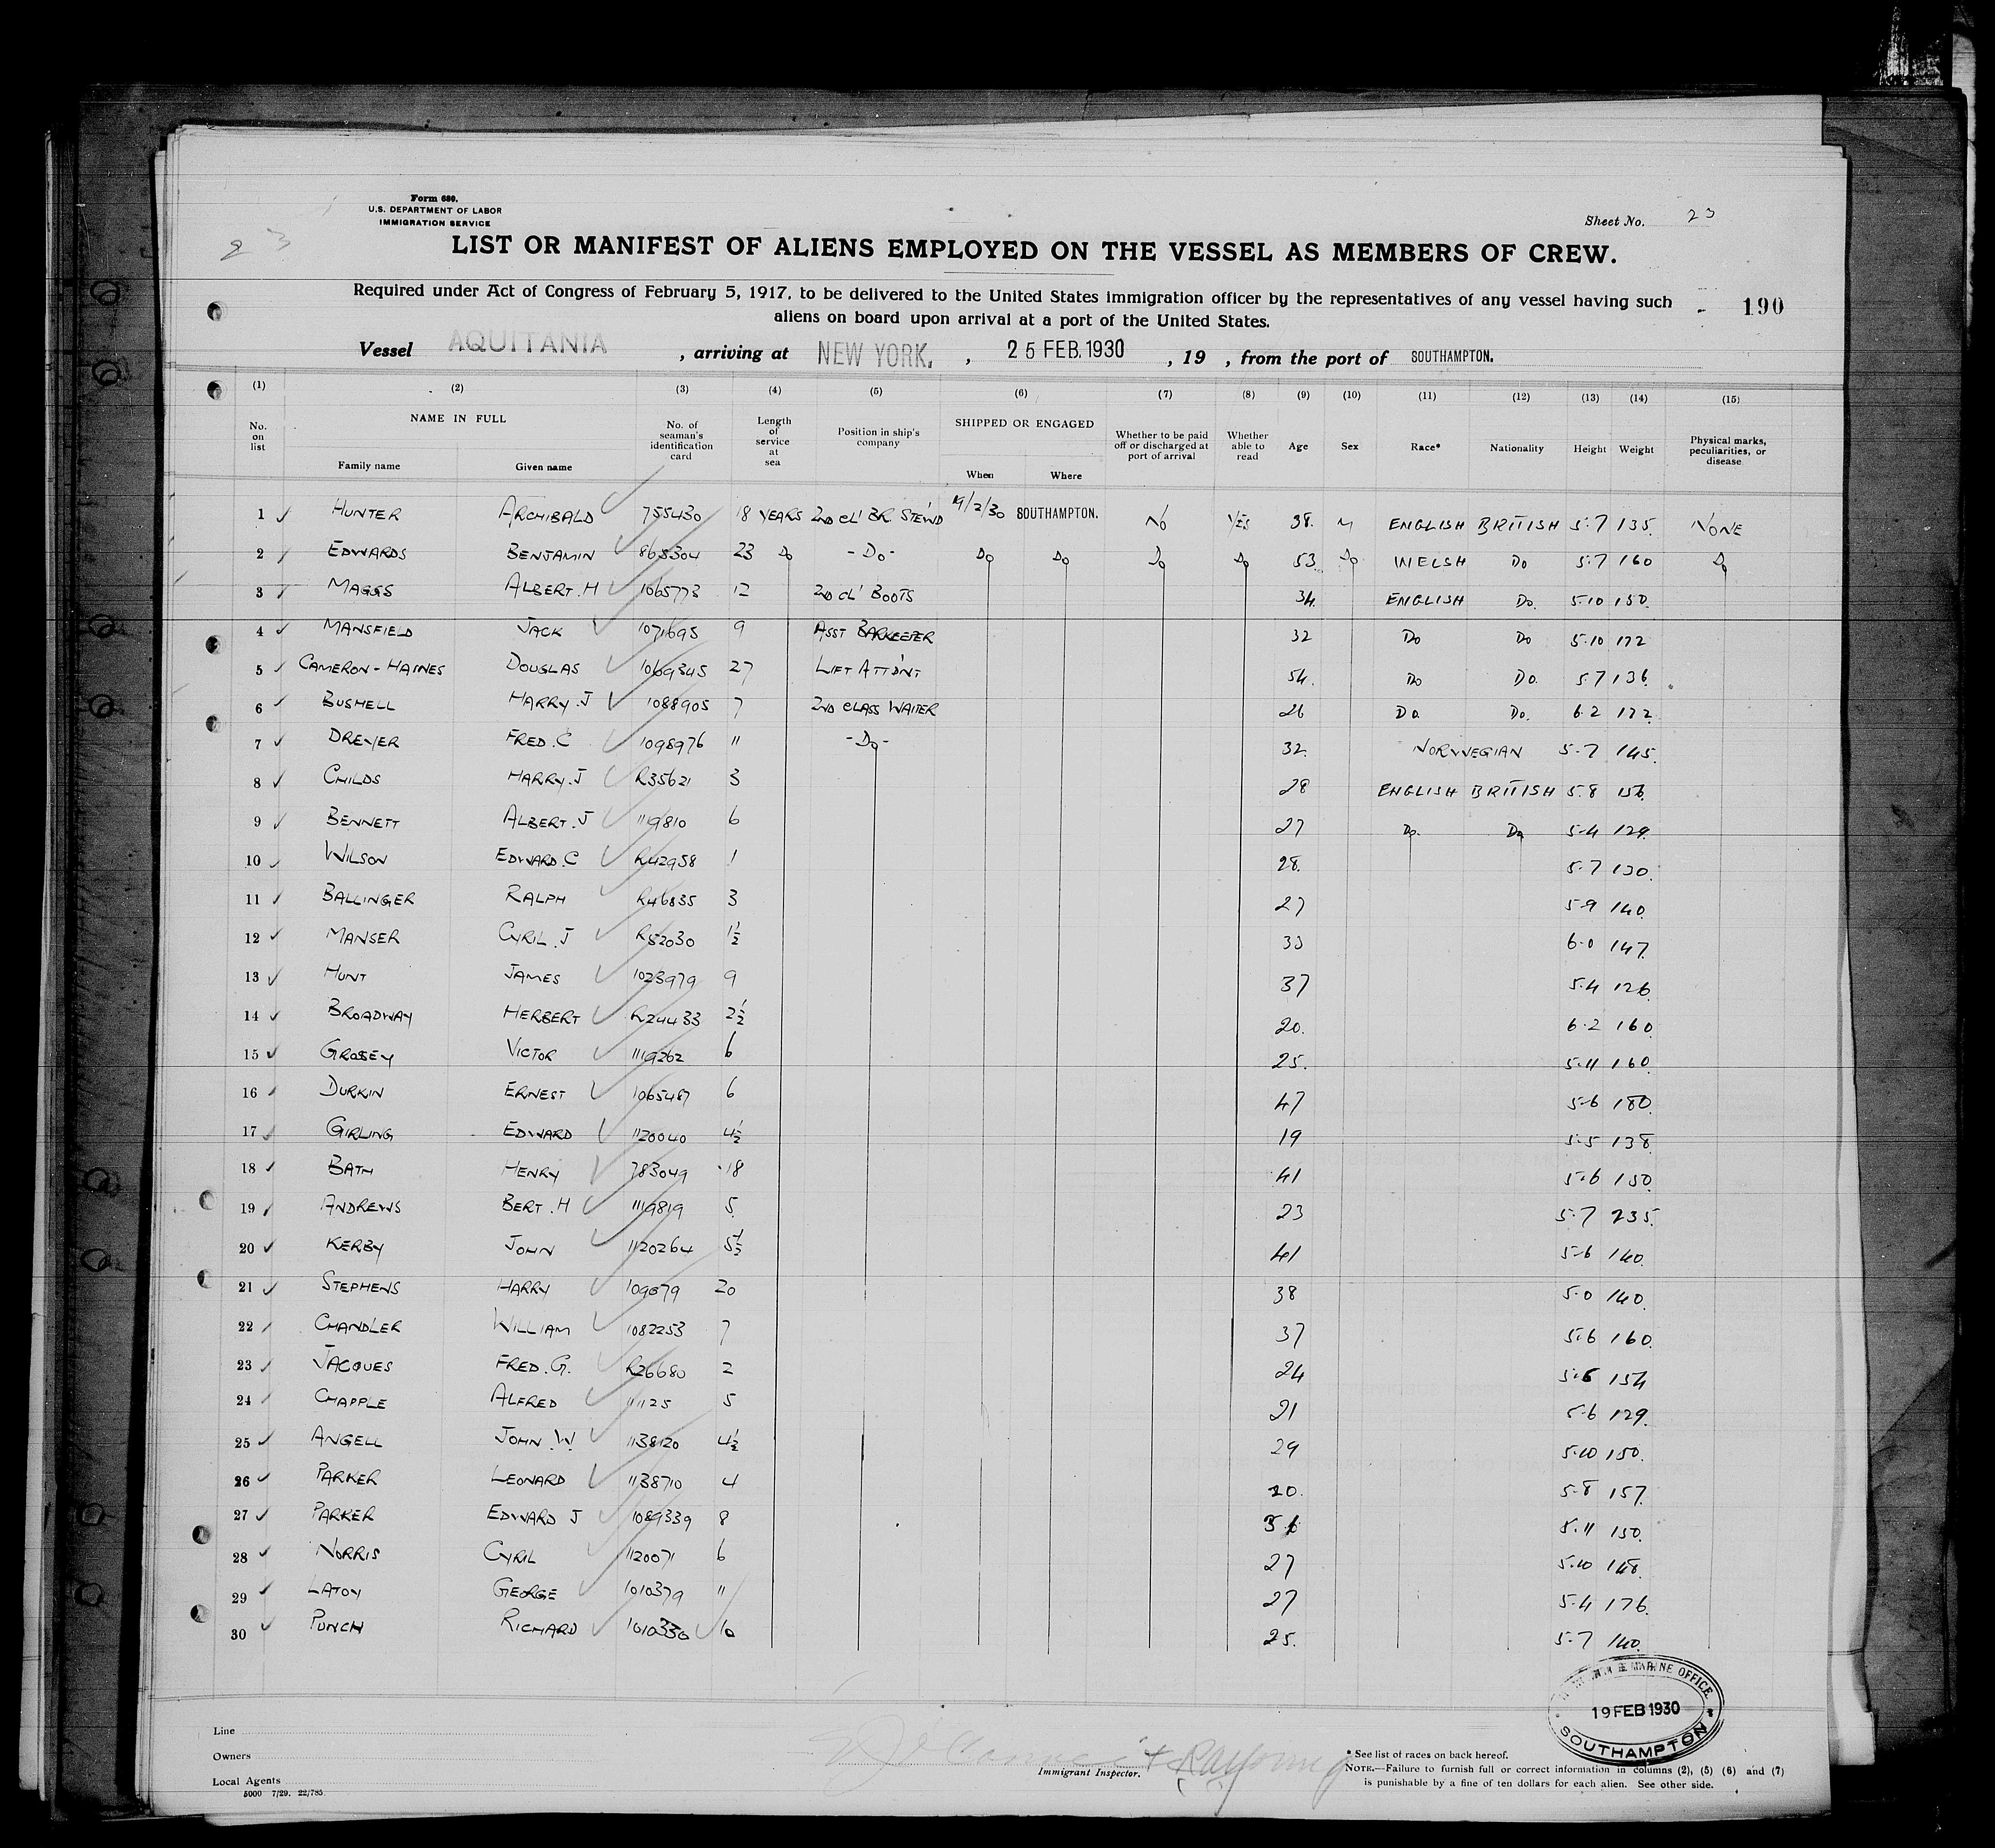 Form 680.
U.S. DEPARTMENT OF LABOR
IMMIGRATION SERVICE
Sheet No. 23
23
LIST OR MANIFEST OF ALIENS EMPLOYED ON THE VESSEL AS MEMBERS OF CREW.
Required under Act of Congress of February 5, 1917, to be delivered to the United States immigration officer by the representatives of any vessel having such
aliens on board upon arrival at a port of the United States.
190
Vessel AQUITANIA, arriving at NEW YORK., 25 FEB. 1930, 19 , from the port of SOUTHAMPTON.
(1) (2) (3) (4) (5) (6) (7) (8) (9) (10) (11) (12) (13) (14) (15)
No. on list NAME IN FULL Family name Given name No. of seaman's identification card Length of service at sea Position in ship's company SHIPPED OR ENGAGED When Where Whether to be paid off or discharged at port of arrival Whether able to read Age Sex Race* Nationality Height Weight Physical marks, peculiarities, or disease
1 HUNTER ARCHIBALD 755430 18 YEARS 2ND CL' BR. STEWD 19/2/30 SOUTHAMPTON. NO YES 38. M ENGLISH BRITISH 5.7 135. NONE
2 EDWARDS BENJAMIN 865304 23 Do -Do- Do Do Do Do 53. Do WELSH Do 5.7 160 Do
3 MAGGS ALBERT.H 1065773 12 2ND CL' BOOTS 34. ENGLISH Do. 5.10 150.
4 MANSFIELD JACK 1071695 9 ASST BARKEEPER 32 Do Do 5.10 172
5 CAMERON-HAINES DOUGLAS 1069345 27 LIFT ATTDNT 54. Do Do. 5.7 136.
6 BUSHELL HARRY.J 1088905 7 2ND CLASS WAITER 26 Do Do. 6.2 172.
7 DREYER FRED.C 1098976 11 -Do- 32. NORWEGIAN 5.7 145.
8 CHILDS HARRY.J R35621 3 28 ENGLISH BRITISH 5.8 156.
9 BENNETT ALBERT.J 1119810 6 27 Do. Do 5.4 129.
10 WILSON EDWARD.C R42958 1 28. 5.7 130.
11 BALLINGER RALPH R46835 3 27 5.9 140.
12 MANSER CYRIL.J R52030 1½ 33 6.0 147.
13 HUNT JAMES 1023979 9 37 5.4 126.
14 BROADWAY HERBERT R24433 2½ 20. 6.2 160
15 GROSSEY VICTOR 1119262 6 25. 5.11 160.
16 DURKIN ERNEST 1065487 6 47 5.6 180.
17 GIRLING EDWARD 1120040 4½ 19 5.5 138
18 BATH HENRY 783049 18 41 5.6 150.
19 ANDREWS BERT.H 1119819 5. 23 5.7 235.
20 KERBY JOHN 1120264 5½ 41 5.6 140.
21 STEPHENS HARRY 109879 20 38 5.0 140.
22 CHANDLER WILLIAM 1082253 7 37 5.6 160.
23 JACQUES FRED.G. R26680 2 24 5.6 154
24 CHAPPLE ALFRED 11125 5 21 5.6 129.
25 ANGELL JOHN.W. 1138120 4½ 29 5.10 150.
26 PARKER LEONARD 1138710 4 20. 5.8 157.
27 PARKER EDWARD J 1089339 8 36 5.11 150.
28 NORRIS CYRIL 1120071 6 27 5.10 148.
29 LATOY GEORGE 1010379 11 27 5.4 176.
30 PUNCH RICHARD 1010330 10 25. 5.7 140.
MARINE OFFICE.
19 FEB 1930
SOUTHAMPTON
Line
Owners
Local Agents
5000 7/29. 22/785
Immigrant Inspector.
* See list of races on back hereof.
NOTE.—Failure to furnish full or correct information in columns (2), (5) (6) and (7)
is punishable by a fine of ten dollars for each alien. See other side.